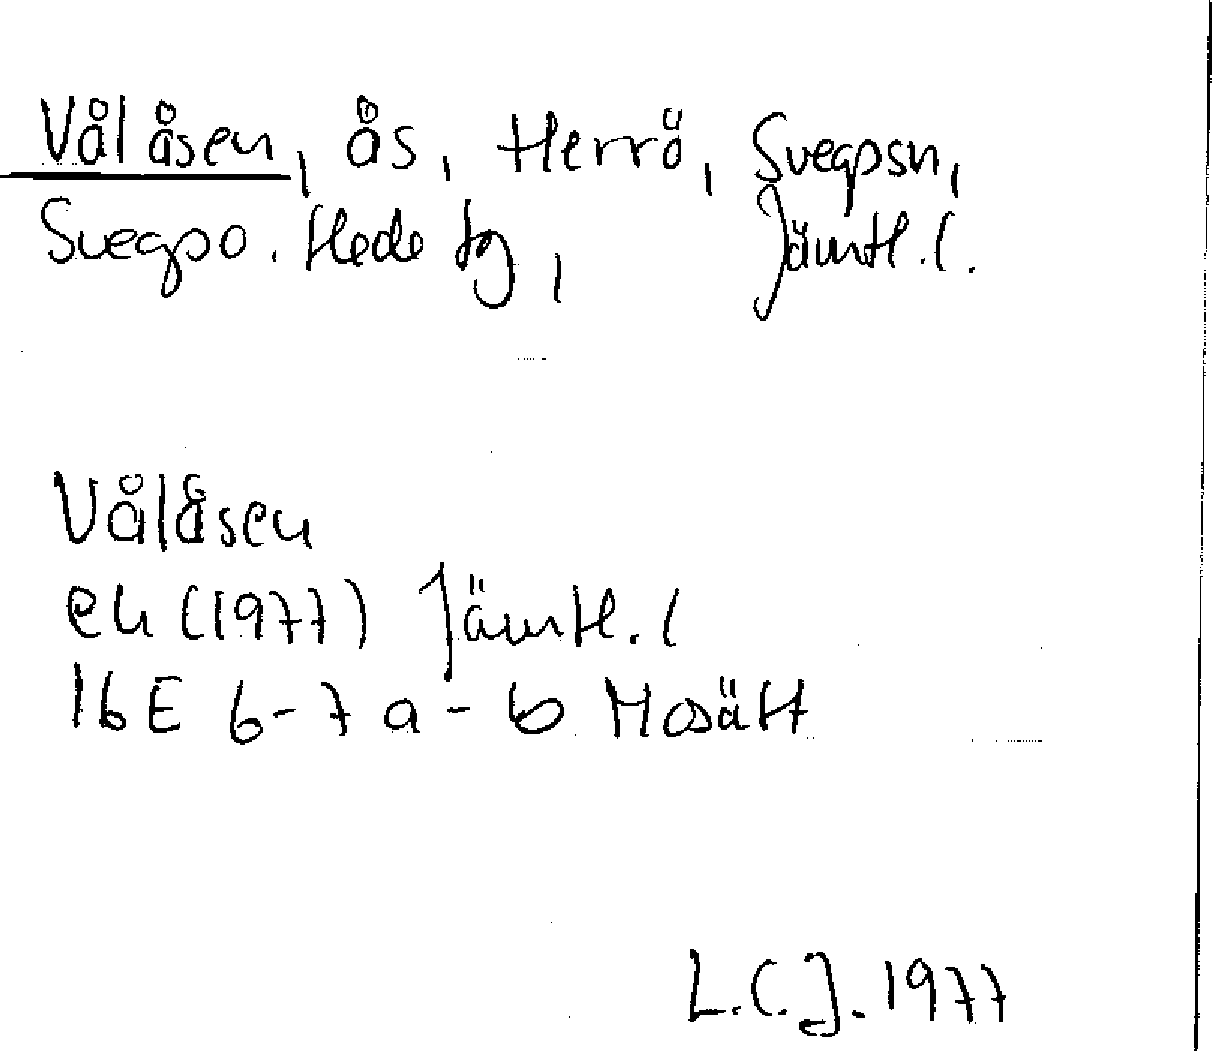 Vålåsen, ås, Herrö, Svegpsn,
Svegpo. Hede tg, Jämtl. l.
Vålåsen
ek (1977) Jämtl. l
16E 6-7 a-b Mosätt
L.C.J. 1977